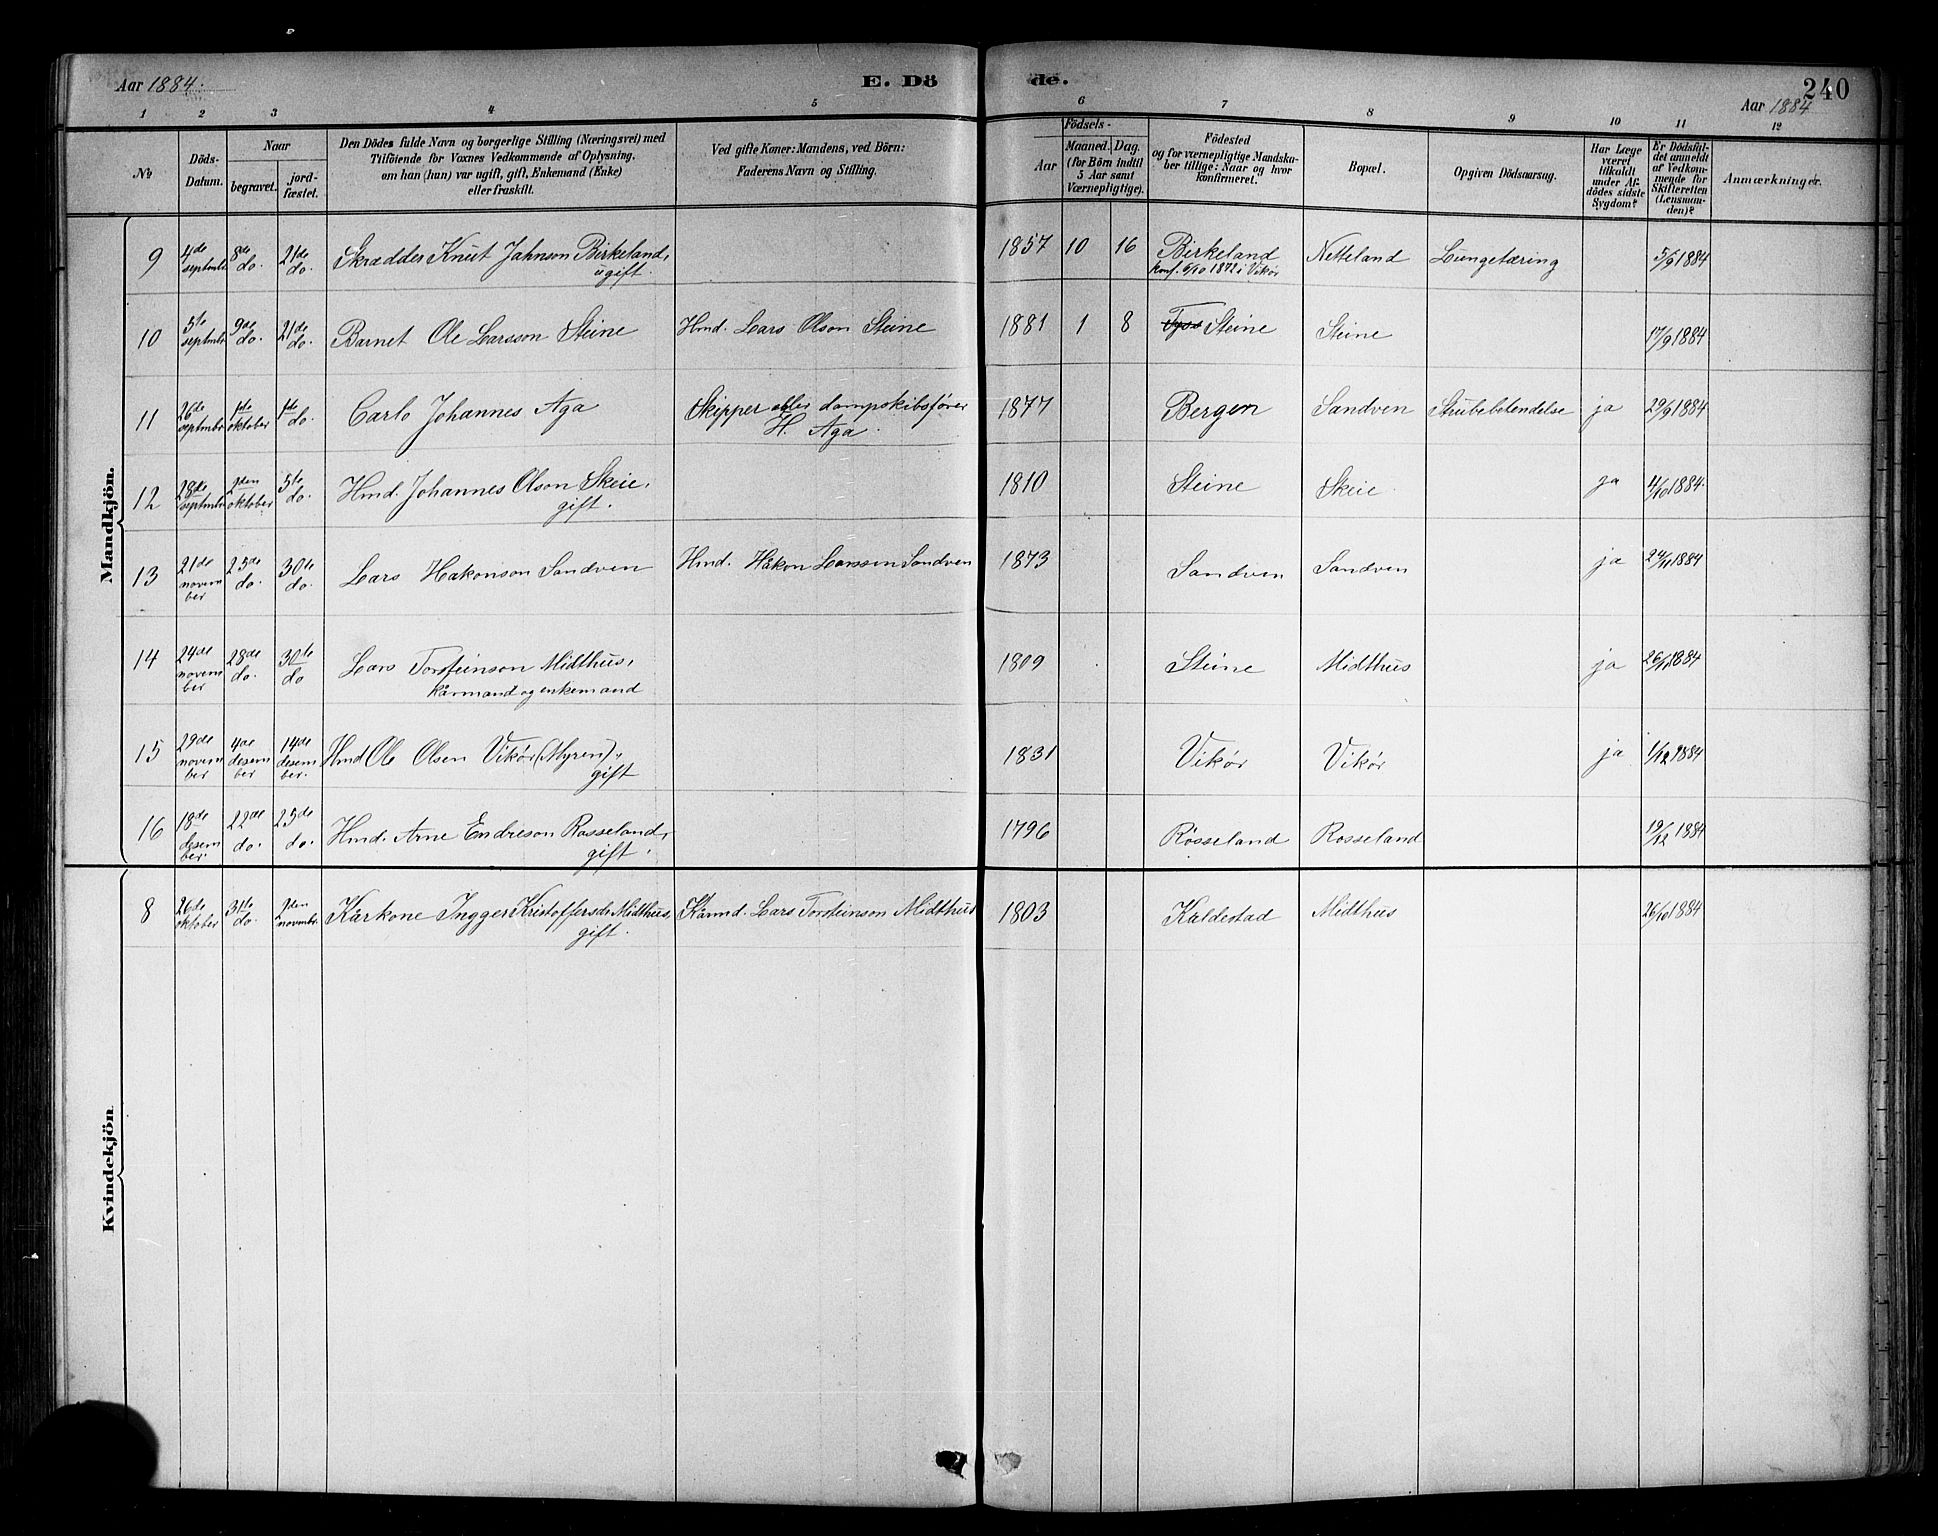 Aar 1884. E. Dö de. 240
Aar 1884
1 2 3 4 5 6 7 8 9 10 11 12
No
Döds-Datum.
Naar
begravet.
jord-fæstet.
Den Dödes fulde Navn og borgerlige Stilling (Næringsvei) med
Tilföiende for Voxnes Vedkommende af Oplysning,
om han (hun) var ugift, gift, Enkemand (Enke)
eller fraskilt.
Ved gifte Koner: Mandens, ved Börn:
Faderens Navn og Stilling.
Födsels-
Aar
Maaned. Dag.
(for Börn indtil
5 Aar samt
Værnepligtige).
Födested
og for værnepligtige Mandska-
ber tillige: Naar og hvor
konfirmeret.
Bopæl.
Opgiven Dödsaarsag.
Har Læge
været
tilkaldt
under Af-
dödes sidste
Sygdom?
Er Dödsfal-
det anmeldt
af Vedkom-
mende for
Skifteretten
(Lensman-
den)?
Anmærkninger.
Mandkjön.
9 4de septembr. 8de do. 21de do. Skrædder Knut Johnson Birkeland, ugift. 1857 10 16 Birkeland konf. 6/10 1872 i Vikör Netteland Lungetæring 5/9 1884
10 5te septmbr. 9de do. 21de do. Barnet Ole Larsson Steine Hmd. Lars Olson Steine 1881 1 8 Steine Steine 17/9 1884
11 26de septmbr 1ste oktober 1ste do. Carlo Johannes Aga Skipper eller dampskibsfører H. Aga. 1877 Bergen Sandven Strubebetendelse ja 29/9 1884
12 28de septmbr 2den oktober 5te do. Hmd. Johannes Olson Skeie, gift. 1810 Steine Skeie. ja 4/10 1884.
13 21de november 25de do. 30te do. Lars Hakonson Sandven Hmd. Håkon Larsson Sandven 1873 Sandven Sandven ja 24/11 1884
14 24de november 28de do. 30te do Lars Torsteinson Midthus, Kårmand og enkemand 1809 Steine Midthus ja 26/11 1884
15 29de november 4de desember 14de desember. Hmd Ole Olsen Vikør (Myren), gift 1831 Vikør Vikør ja 1/12 1884
16 18de desember. 22de do. 25de do. Hmd. Arne Endreson Rosseland, gift. 1796 Rosseland Rosseland 19/12 1884
Kvindekjön
8 26de oktober 31te do. 2den novmbr. Kårkone Ingger Kristoffersdr Midthus, gift. Kårmd. Lars Torsteinson Midthus 1803 Kaldestad Midthus 26/10 1884